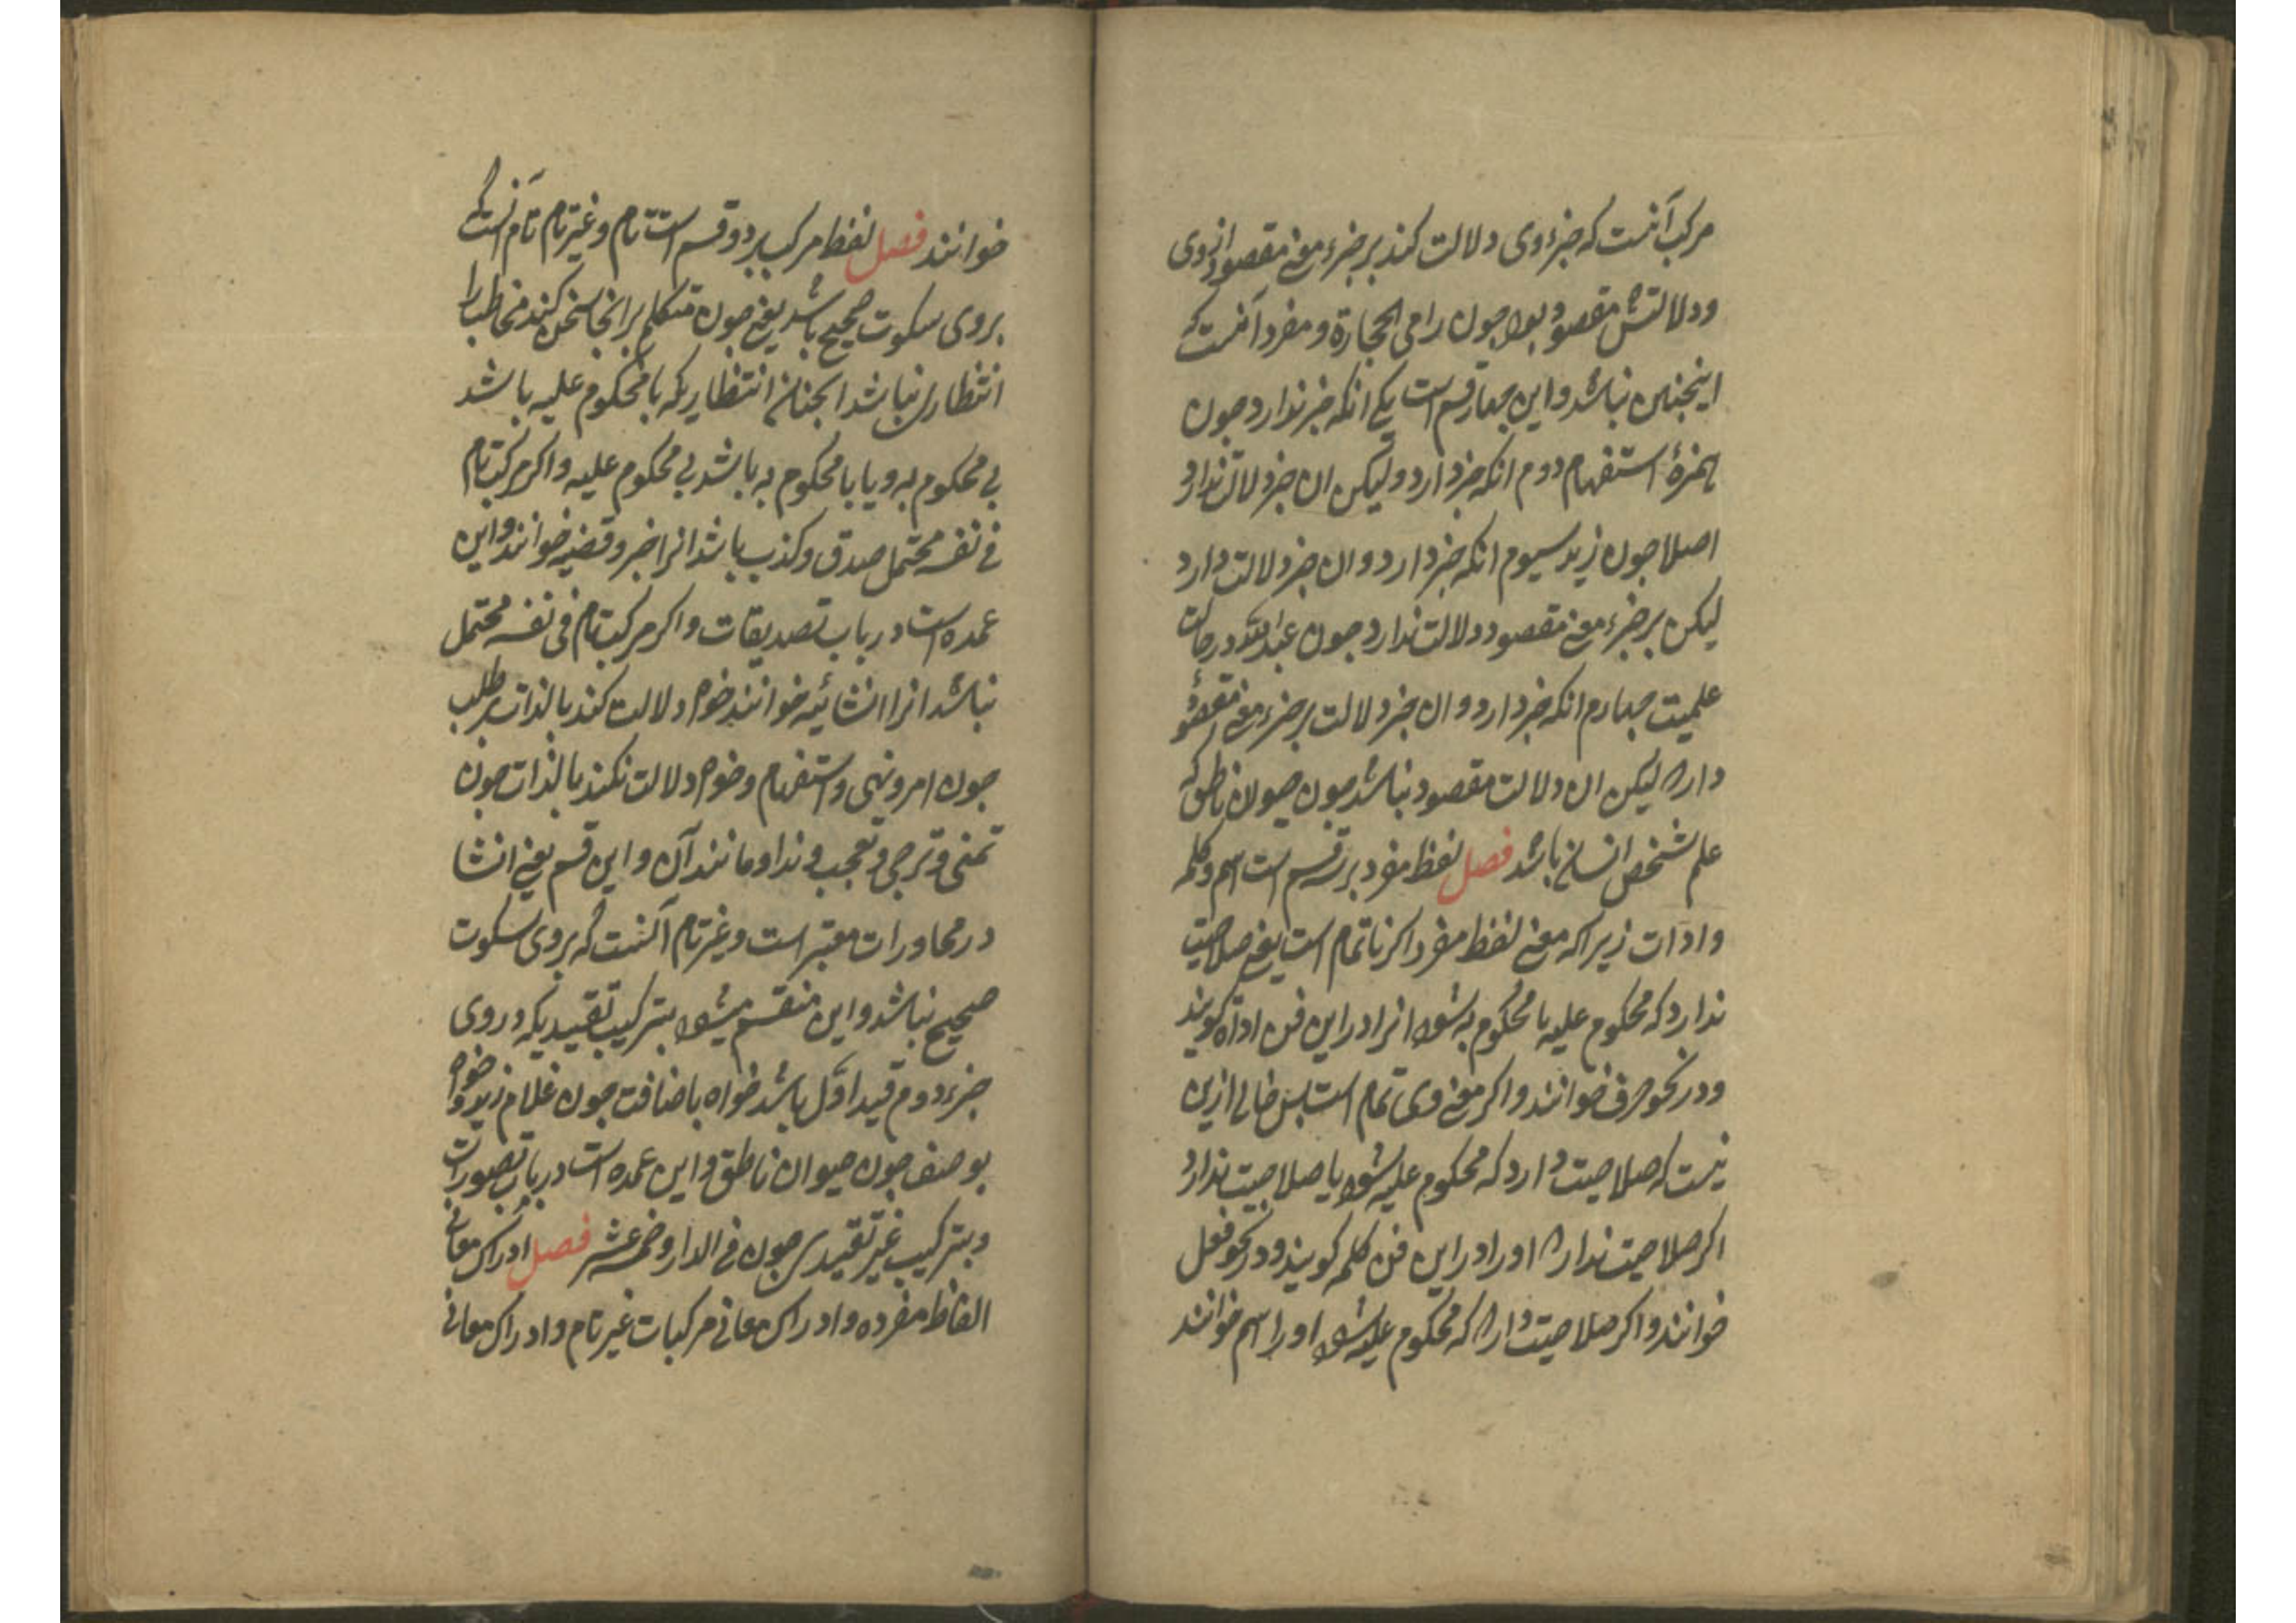 مرکب آنست که جزء وی دلالت کند بر جزء معنی مقصود از وی
ودلالتش مقصود بود چون رامی الحجارة و مفرد آنست که
اینچنین نباشد و این چهار قسم است یکی انکه جزء ندارد چون
همزهٔ استفهام دوم انکه جزء دارد ولیکن ان جزء دلالت ندارد
اصلا چون زید سیوم انکه جزء دارد و ان جزء دلالت دارد
لیکن بر جزء معنی مقصود دلالت ندارد چون عبدالله در حالت
علمیت چهارم انکه جزء دارد و ان جزء دلالت بر جزء معنی مقصود
دارد لیکن ان دلالت مقصود نباشد چون حیوان ناطق که
علم شخص انسانی باشد فصل لفظ مفرد بر سه قسم است اسم و کلمه
وادات زیراکه معنی لفظ مفرد اکر ناتمام است یعنی صلاحیت
ندارد که محکوم علیه یا محکوم به شود انرا در این فن اداة کویند
ودر نحو حرف خوانند و اکر معنی وی تمام است پس خالی ازین
نیست که صلاحیت دارد که محکوم علیه شود یا صلاحیت ندارد
اکر صلاحیت ندارد او را در این فن کلمه کویند و در نحو فعل
خوانند و اکر صلاحیت دارد که محکوم علیه شود او را اسم خوانند
خوانند فصل لفظ مرکب بر دو قسم است تام و غیر تام تام آنست که
بر وی سکوت صحیح باشد یعنی چون متکلم بر انجا سخن کند مخاطب را
انتظاری نباشد انچنان انتظاریکه با محکوم علیه باشد
بی محکوم به و یا با محکوم به باشد بی محکوم علیه و اکر مرکب تام
فی نفسه محتمل صدق و کذب باشد انرا خبر و قضیه خوانند و این
عمده است در باب تصدیقات و اکر مرکب تام فی نفسه محتمل
نباشد انرا انشائیه خوانند خواه دلالت کند بالذات بر طلب
چون امر و نهی و استفهام و خواه دلالت نکند بالذات چون
تمنی و ترجی و تعجب و ندا و مانند آن و این قسم یعنی انشا
در محاورات معتبر است و غیر تام آنست که بر وی سکوت
صحیح نباشد و این منقسم میشود بترکیب تقییدیکه در وی
جزء دوم قید اوّل باشد خواه باضافت چون غلام زید و خواه
بوصف چون حیوان ناطق و این عمده است در باب تصورات
و بترکیب غیر تقییدی چون فی الدار و خمسه عشر فصل ادراک معانی
الفاظ مفرده و ادراک معانی مرکبات غیر تام و ادراک معانی